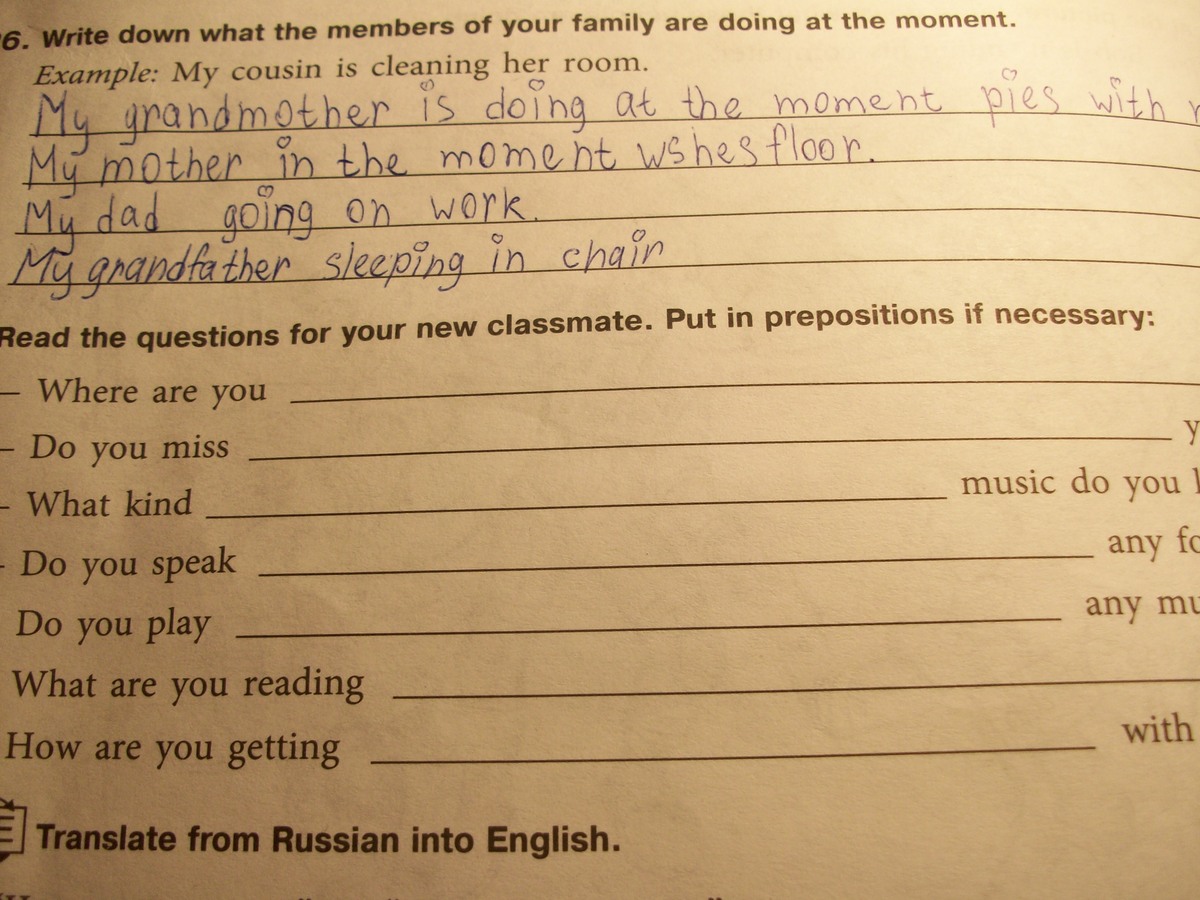 6. Write down what the members of your family are doing at the moment.
Example: My cousin is cleaning her room.
My grandmother is doing at the moment pies with
My mother in the moment wshes floor.
My dad going on work.
My grandfather sleeping in chair
Read the questions for your new classmate. Put in prepositions if necessary:
– Where are you
– Do you miss
– What kind music do you
- Do you speak any
Do you play any
What are you reading
How are you getting with
Translate from Russian into English.